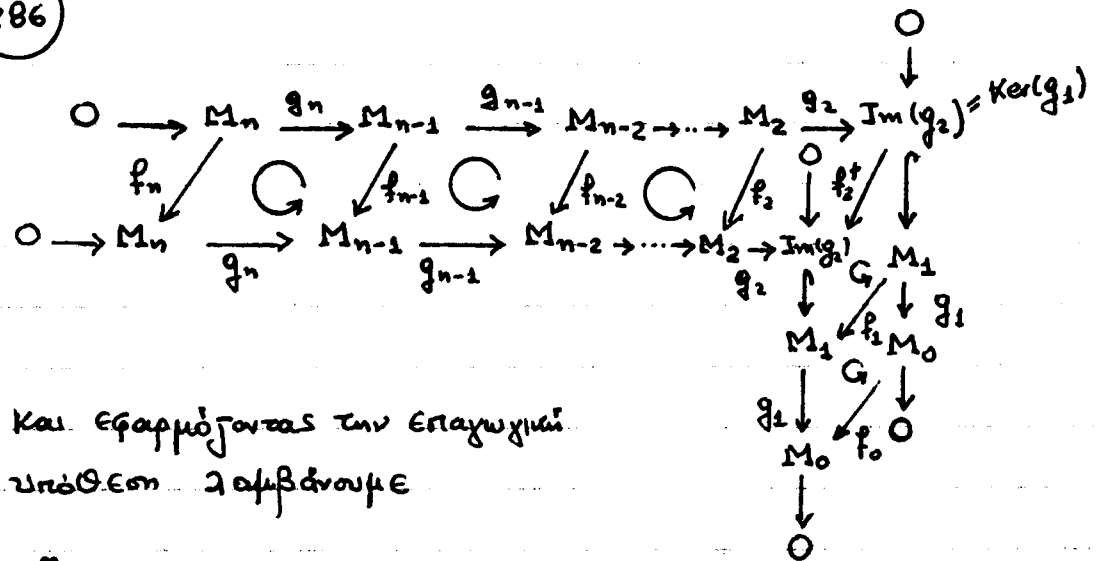 286
O
O → Mₙ gₙ → Mₙ₋₁ gₙ₋₁ → Mₙ₋₂ → ... → M₂ g₂ → Im(g₂) = Ker(g₁)
fₙ fₙ₋₁ fₙ₋₂ f₂ O f₂⁺
O → Mₙ gₙ → Mₙ₋₁ gₙ₋₁ → Mₙ₋₂ → ... → M₂ g₂ → Im(g₂) M₁
f₁ g₁
M₁ M₀
g₁ f₀ O
M₀
O
και εφαρμόζοντας την επαγωγική
υπόθεση λαμβάνουμε